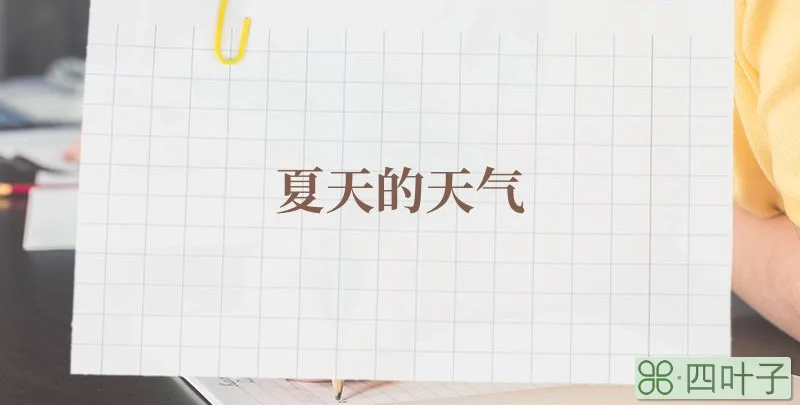 夏天的天气
四叶子